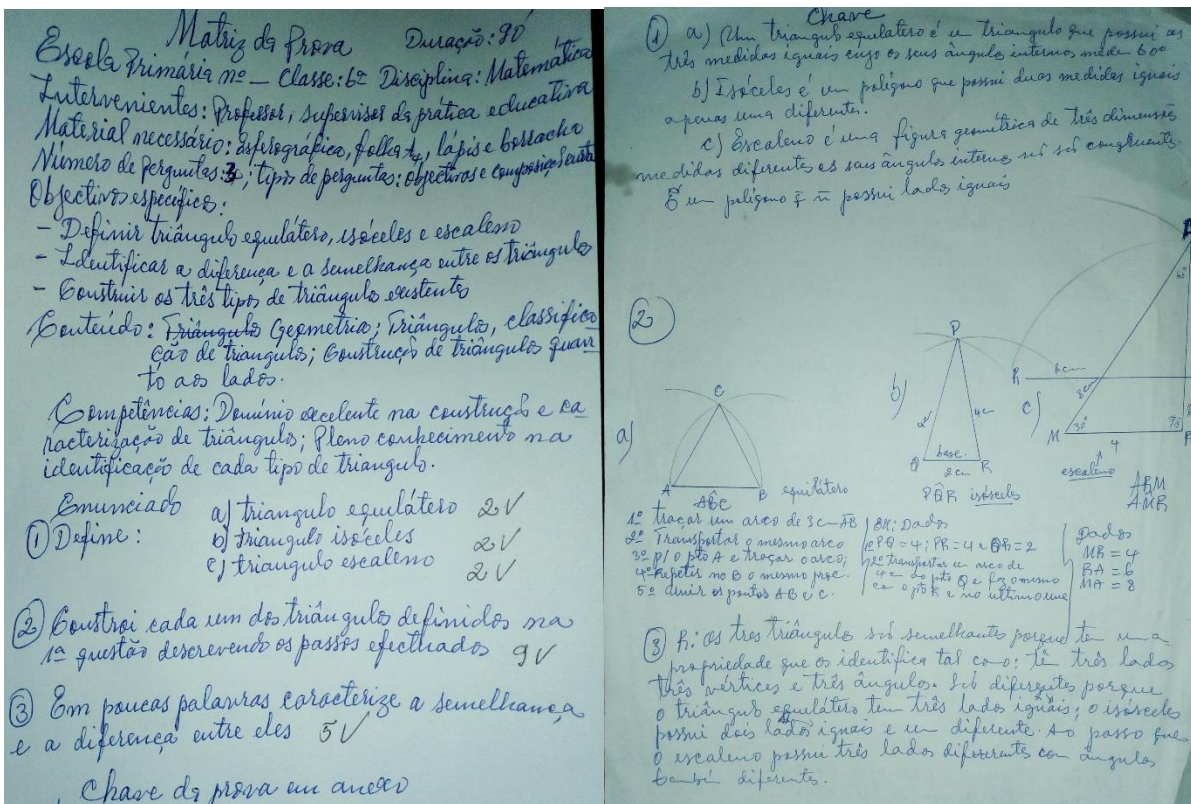 Matriz da Prova Duração: 90'
Escola Primária nº — Classe: 6ª Disciplina: Matemática
Intervenientes: Professor, supervisor da prática educativa
Material necessário: esferográfica, folha A4, lápis e borracha
Número de perguntas: 3; tipos de perguntas: objectivas e composição
Objectivos específicos:
- Definir triângulo equilátero, isóceles e escaleno
- Identificar a diferença e a semelhança entre os triângulos
- Construir os três tipos de triângulos existentes
Conteúdo: Triângulos Geometria; Triângulos, classifica
ção de triangulos; Construção de triângulos quan-
to aos lados.
Competências: Domínio excelente na construção e ca
racterização de triângulos; Pleno conhecimento na
identificação de cada tipo de triangulo.
Enunciado
① Define: a) triangulo equilátero 2V
b) triangulo isóceles 2V
c) triangulo escaleno 2V
② Constroi cada um dos triângulos definidos na
1ª questão descrevendo os passos efecthados 9V
③ Em poucas palavras caracterize a semelhança
e a diferença entre eles 5V
Chave da prova em anexo
Chave
① a) Um triangulo equilatero é um triangulo que possui as
três medidas iguais cujo os seus ângulos internos medem 60º
b) Isóceles é um polígono que possui duas medidas iguais
apenas uma diferente.
c) Escaleno é uma figura geométrica de três dimensões
medidas diferentes os seus ângulos internos são congruentes
É um polígono q̃ ñ possui lados iguais
②
a)
C
A
B
equilátero
ABC
b)
P
4cm
4cm
base
2cm
Q
R
PQR isósceles
c)
R
6cm
8cm
M
30
4
60
escaleno
AMR
1º traçar um arco de 3c— AB
2º Transportar o mesmo arco
3º p/ o pto A e traçar o arco;
4º Repetir no B o mesmo proc.
5º unir os pontos AB e C.
EX: Dados
PQ = 4; PR = 4 e QR = 2
2º transportar um arco de
4cm do pto Q e faz o mesmo
com o pto R e no ultimo une
Dados
MR = 4
RA = 6
MA = 8
③ R: Os tres triângulos são semelhantes porque tem uma
propriedade que os identifica tal como: tê três lados
três vértices e três ângulos. São diferentes porque
o triângulo equilátero tem três lados iguais; o isósceles
possui dois lados iguais e um diferente. Ao passo que
o escaleno possui três lados diferentes com ângulos
também diferentes.